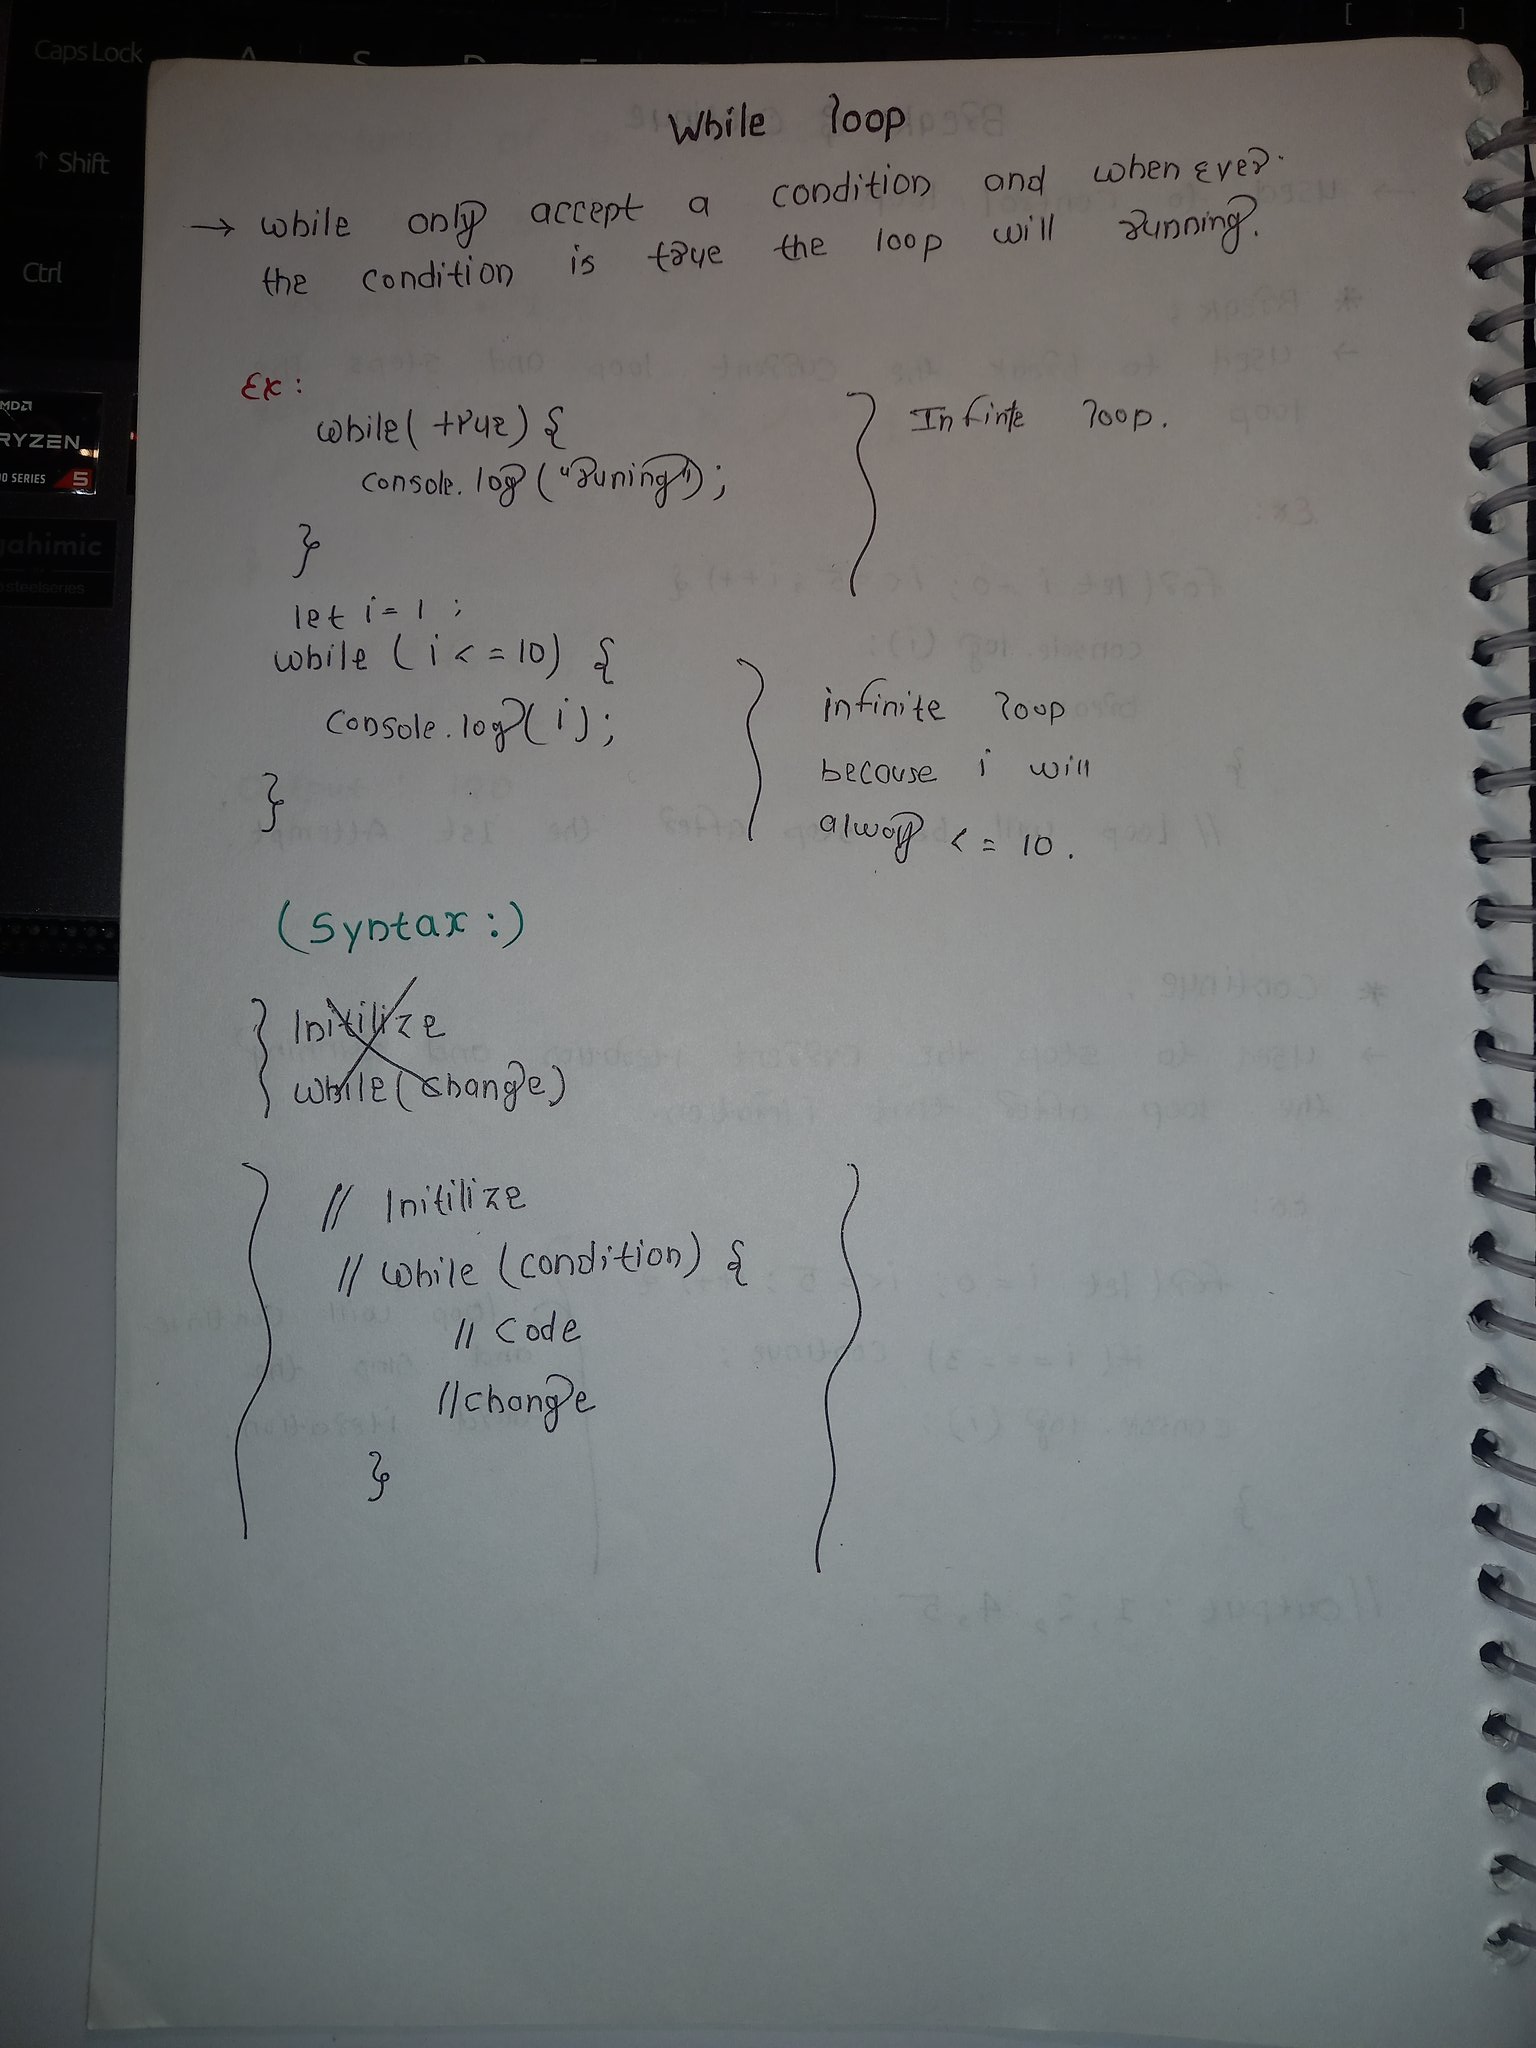 [ ]
Caps Lock A S D F
↑ Shift
Ctrl
AMD
RYZEN
5
SERIES
gahimic
steelseries
While loop
→ while only accept a condition and when ever
the condition is true the loop will running.
Ex:
while(true) {
console.log("runing");
}
Infinte loop.
let i = 1 ;
while (i <= 10) {
console.log(i);
}
infinite loop
because i will
alway <= 10.
(Syntax:)
Initilize
while(change)
// Initilize
// while (condition) {
// code
//change
}